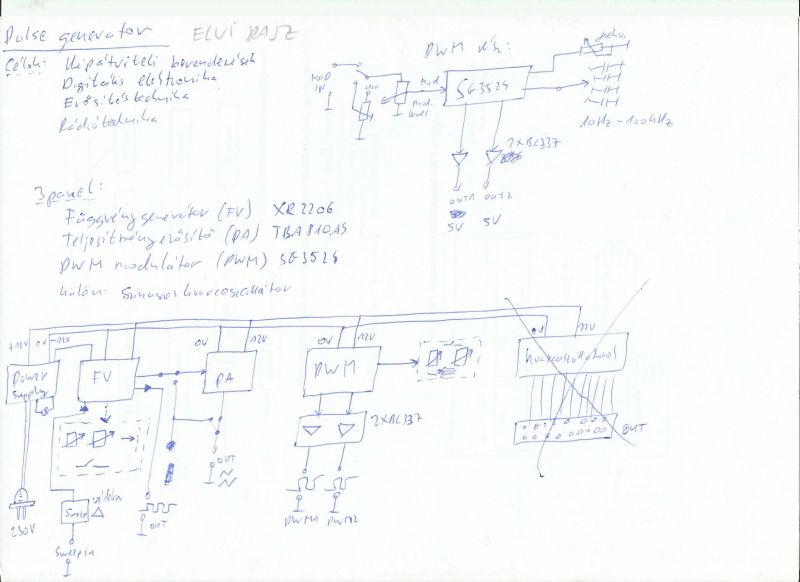 Pulse generator
ELVI RAJZ
Célok: Hipátviteli berendezések
Digitális elektronika
Erősítéstechnika
Rádiótechnika
PWM rész:
MOD
IN
Mod.
Mod.
level
SG3524
10Hz-100kHz
2xBC337
OUT1 OUT2
5V 5V
3 panel:
Függvénygenerátor (FV) XR2206
Teljesítményerősítő (PA) TBA810AS
PWM modulátor (PWM) SG3524
külön: Szinuszos kvarcoszcillátor
+12V 0V -12V
0V 12V
0V 12V
0V 12V
Power
Supply
FV
PA
PWM
kvarcoszcillátorok
2xBC337
OUT
OUT
230V
Sweep
OUT
PWM1 PWM2
Sweep in